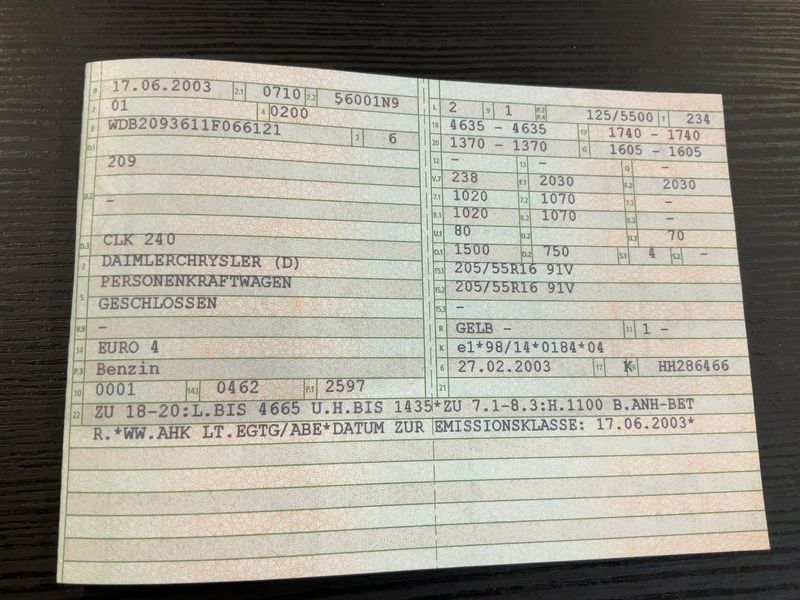 B 17.06.2003 2.1 0710 2.2 56001N9
J 01 4 0200
E WDB2093611F066121 3 6
D.1
209
D.2 -
D.3 CLK 240
2 DAIMLERCHRYSLER (D)
PERSONENKRAFTWAGEN
5 GESCHLOSSEN
V.9 -
14 EURO 4
P.3 Benzin
10 0001 14.1 0462 P.1 2597
L 2 9 1 P.2 P.4 125/5500 T 234
18 4635 - 4635 19 1740 - 1740
20 1370 - 1370 G 1605 - 1605
12 - 13 - Q -
V.7 238 F.1 2030 F.2 2030
7.1 1020 7.2 1070 7.3 -
8.1 1020 8.2 1070 8.3 -
U.1 80 U.2 U.3 70
O.1 1500 O.2 750 S.1 4 S.2 -
15.1 205/55R16 91V
15.2 205/55R16 91V
15.3 -
R GELB - 11 1 -
K e1*98/14*0184*04
6 27.02.2003 17 K 16 HH286466
21
22 ZU 18-20:L.BIS 4665 U.H.BIS 1435*ZU 7.1-8.3:H.1100 B.ANH-BET
R.*WW.AHK LT.EGTG/ABE*DATUM ZUR EMISSIONSKLASSE: 17.06.2003*